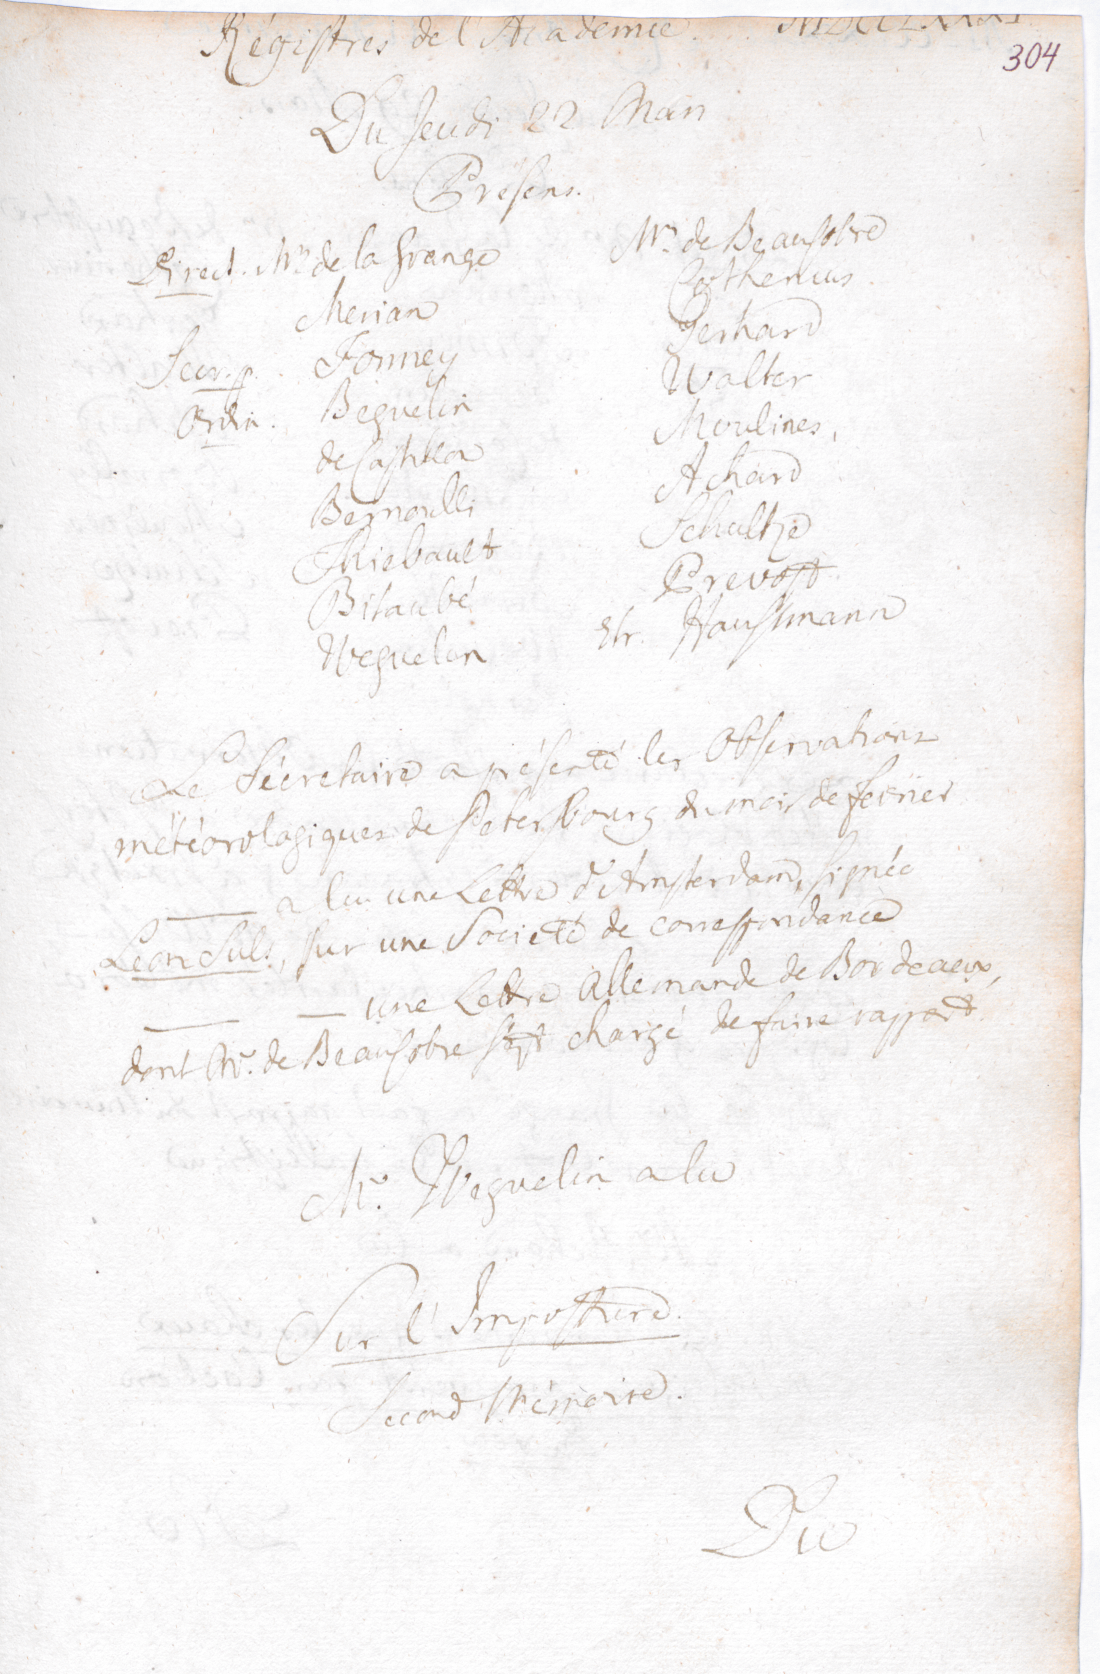 Régistres de l'Académie. MDCCLXXXI
304
Du Jeudi 22 Mars
Présens.
Direct. Mrs de la Grange
Merian
Secr. p. Formey
Ordin. Beguelin
de Castillon
Bernoulli
Thiebault
Bitaubé
Weguelin
Mrs de Beausobre
Cothenius
Gerhard
Walter
Moulines,
Achard
Schultze
Prevost
Etr. Haussmann
Le Sécretaire a présenté les Observations
météorologiques de Petersbourg du mois de fevrier
—— a lu une Lettre d'Amsterdam, signée
Léon Suls., sur une Societé de correspondance
—— — une Lettre Allemande de Bordeaux,
dont Mr. de Beausobre s'est chargé de faire rapport.
Mr. Weguelin a lu
Sur l'Imposture.
Second Mémoire.
Du